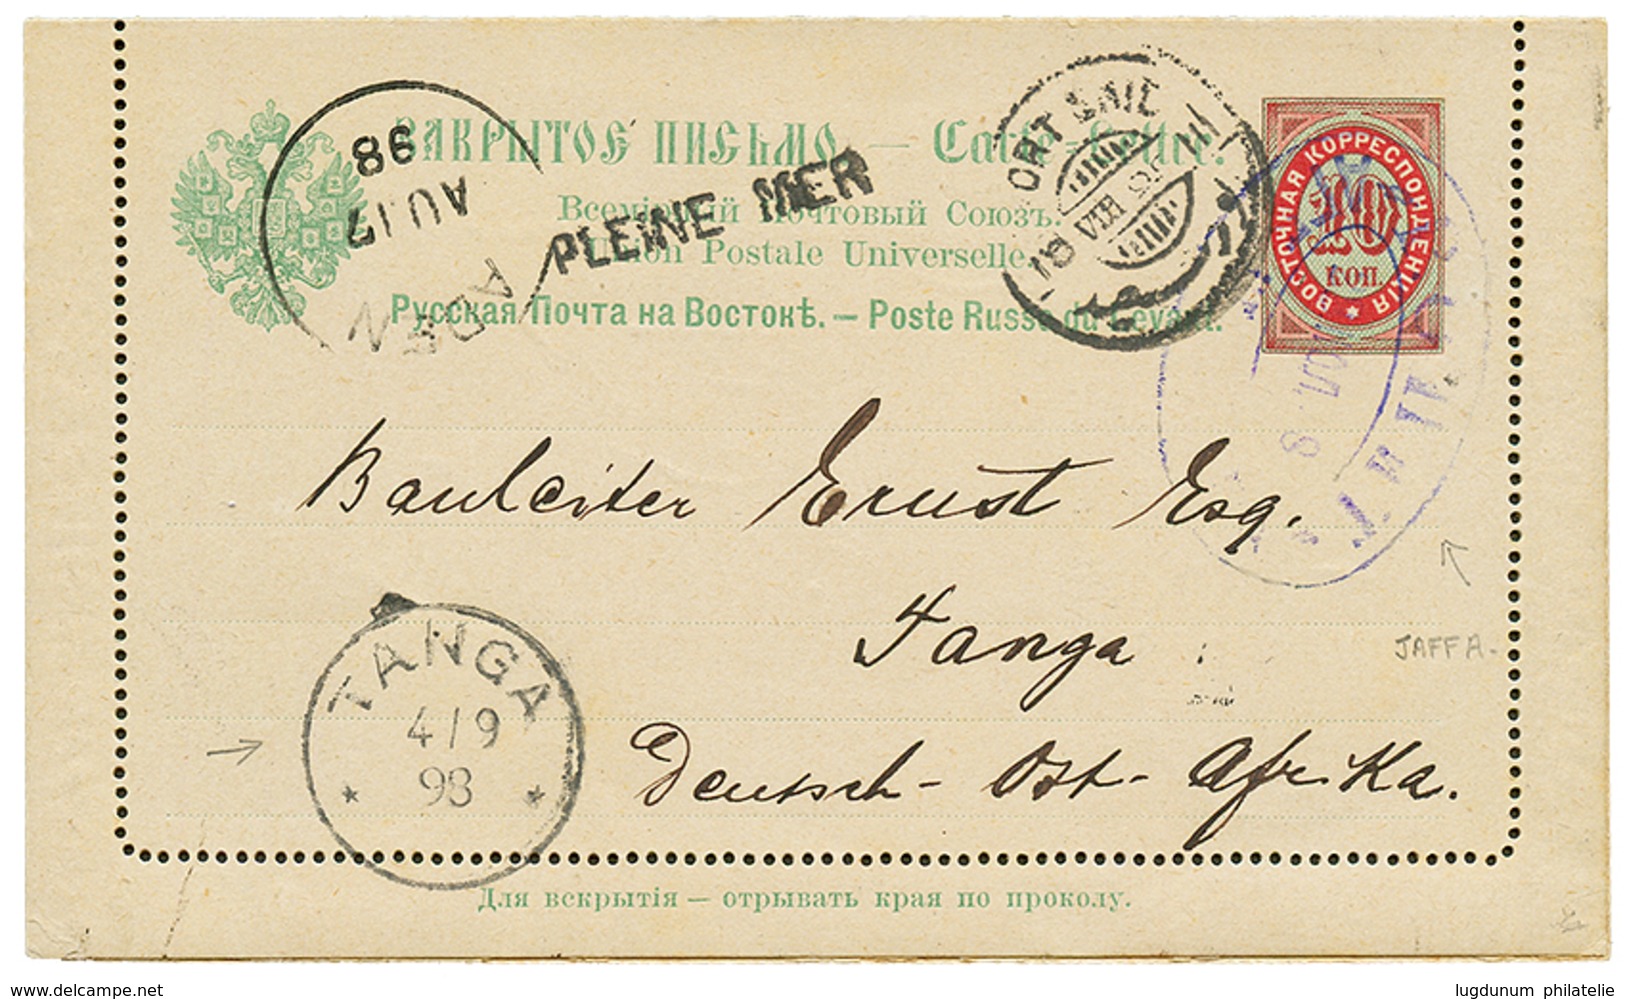 ЗАКРЫТОЕ ПИСЬМО. — Carte-Lettre.
Всемірный Почтовый Союзъ.
Union Postale Universelle.
Русская Почта на Востокѣ. — Poste Russe du Levant.
ADEN
AU 17
98
PLEINE MER
PORT SAID
VIII 98
ВОСТОЧНАЯ КОРРЕСПОНДЕНЦІЯ
10
КОП
Bauleiter Ernst Esq.
Tanga
JAFFA.
Deutsch-Ost-Afrika.
TANGA
4/9
98
Для вскрытія — отрывать края по проколу.
www.delcampe.net
lugdunum philatelie